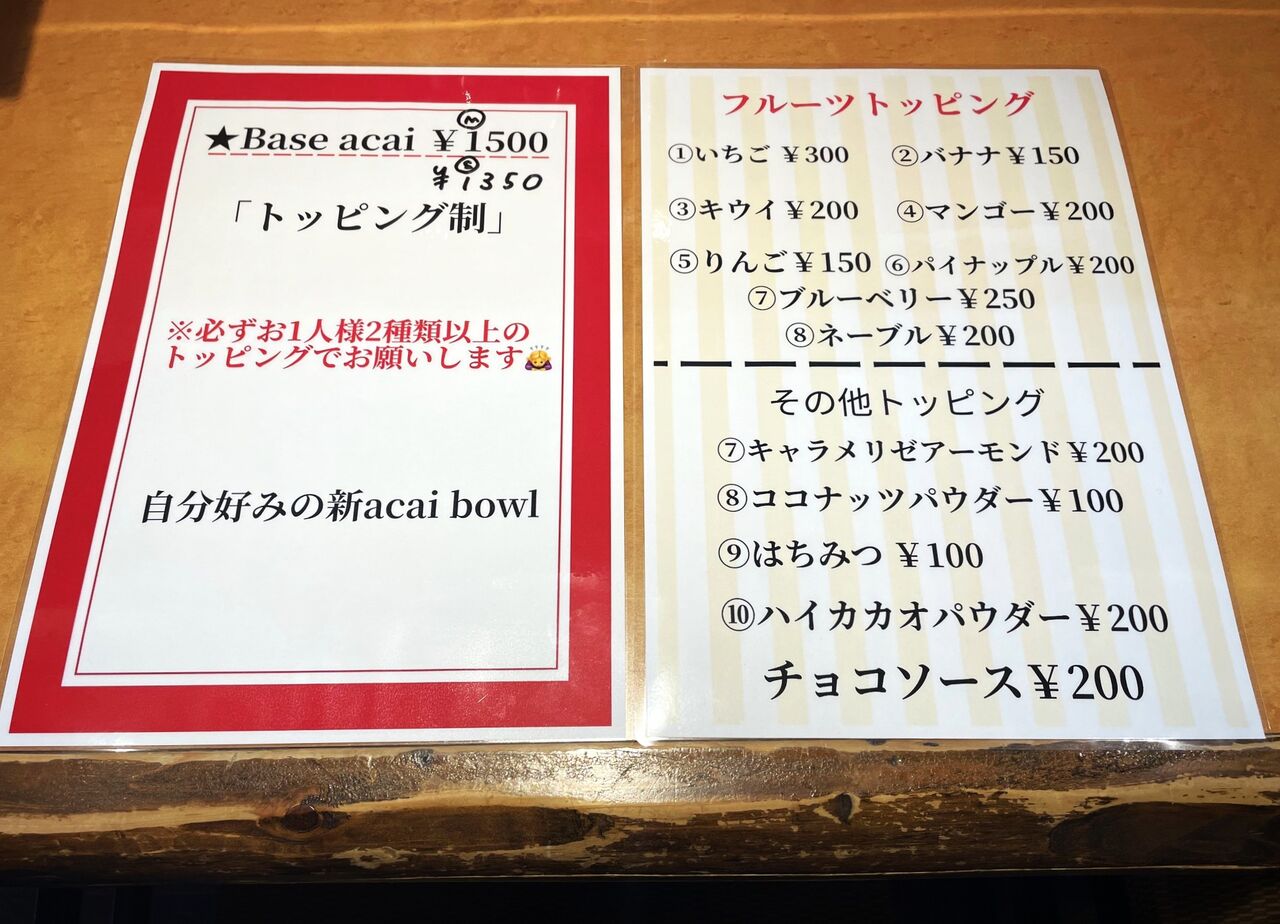 Ⓜ
★Base acai ￥1500
Ⓢ
¥1350
「トッピング制」
※必ずお1人様2種類以上の
トッピングでお願いします🙇
自分好みの新acai bowl
フルーツトッピング
①いちご ￥300 ②バナナ￥150
③キウイ￥200 ④マンゴー￥200
⑤りんご￥150 ⑥パイナップル￥200
⑦ブルーベリー￥250
⑧ネーブル￥200
その他トッピング
⑦キャラメリゼアーモンド￥200
⑧ココナッツパウダー￥100
⑨はちみつ ￥100
⑩ハイカカオパウダー￥200
チョコソース￥200